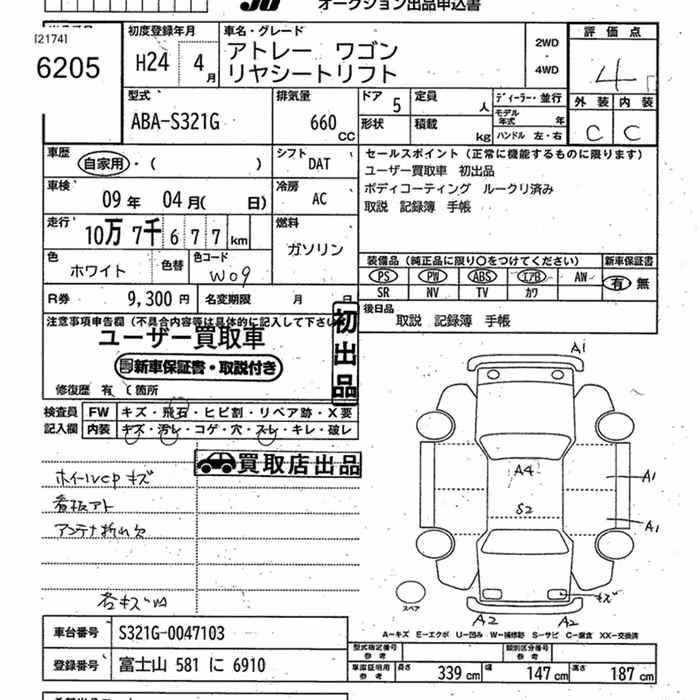 オークション出品申込書
[2174]
6205
初度登録年月
H24 4月
車名・グレード
アトレー ワゴン
リヤシートリフト
2WD
・
4WD
評価点
4
外装 内装
C C
型式
ABA-S321G
排気量
660 CC
ドア 5
定員 人
形状
積載 kg
ディーラー・並行
モデル年式 年
ハンドル 左・右
車歴
自家用・( )
シフト
DAT
車検
09年 04月( 日)
冷房
AC
走行
10万 7千 6 7 7 km
燃料
ガソリン
色
ホワイト
色替
色コード
W09
セールスポイント (正常に機能するものに限ります)
ユーザー買取車 初出品
ボディコーティング ルークリ済み
取説 記録簿 手帳
装備品 (純正品に限り○をつけてください)
新車保証書
PS PW ABS エアB AW
有 無
SR NV TV カワ
R券 9,300 円
名変期限 月 日
後日品
取説 記録簿 手帳
注意事項申告欄 (不具合内容等は具体的に記入して下さい
ユーザー買取車
新車保証書・取説付き
初出品
修復歴 有 ( 箇所
検査員
記入欄
FW キズ・飛石・ヒビ割・リペア跡・X要
内装 キズ・汚レ・コゲ・穴・スレ・キレ・破レ
買取店出品
ホイールCP キズ
看板アト
アンテナ折れ欠
各キズ
A1
A4
A1
S2
A1
キズ
A2 A2
スペア
A=キズ E=エクボ U=凹み W=補修跡 S=サビ C=腐食 XX=交換済
車台番号 S321G-0047103
登録番号 富士山 581 に 6910
型式指定番号
参考
類別区分番号
参考
車庫証明用
参考
長さ 339 cm 幅 147 cm 高さ 187 cm